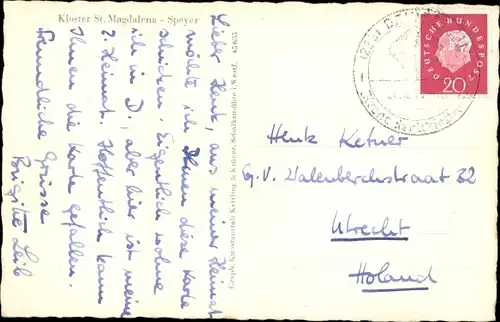 Kloster St. Magdalena - Speyer
Lieber Henk, aus meiner Heimat
möchte ich Ihnen diese Karte
schicken. Eigentlich wohne
ich in D., aber hier ist meine
2. Heimat. Hoffentlich kann
Ihnen die Karte gefallen.
Freundliche Grüsse
Brigitte Leib
Graph. Kunstanstalt Kettling & Krüger, Schalksmühle i. Westf. 45655
DEUTSCHE BUNDESPOST
20
Henk Ketner
G. V. Walenberchstraat 32
Utrecht
Holand